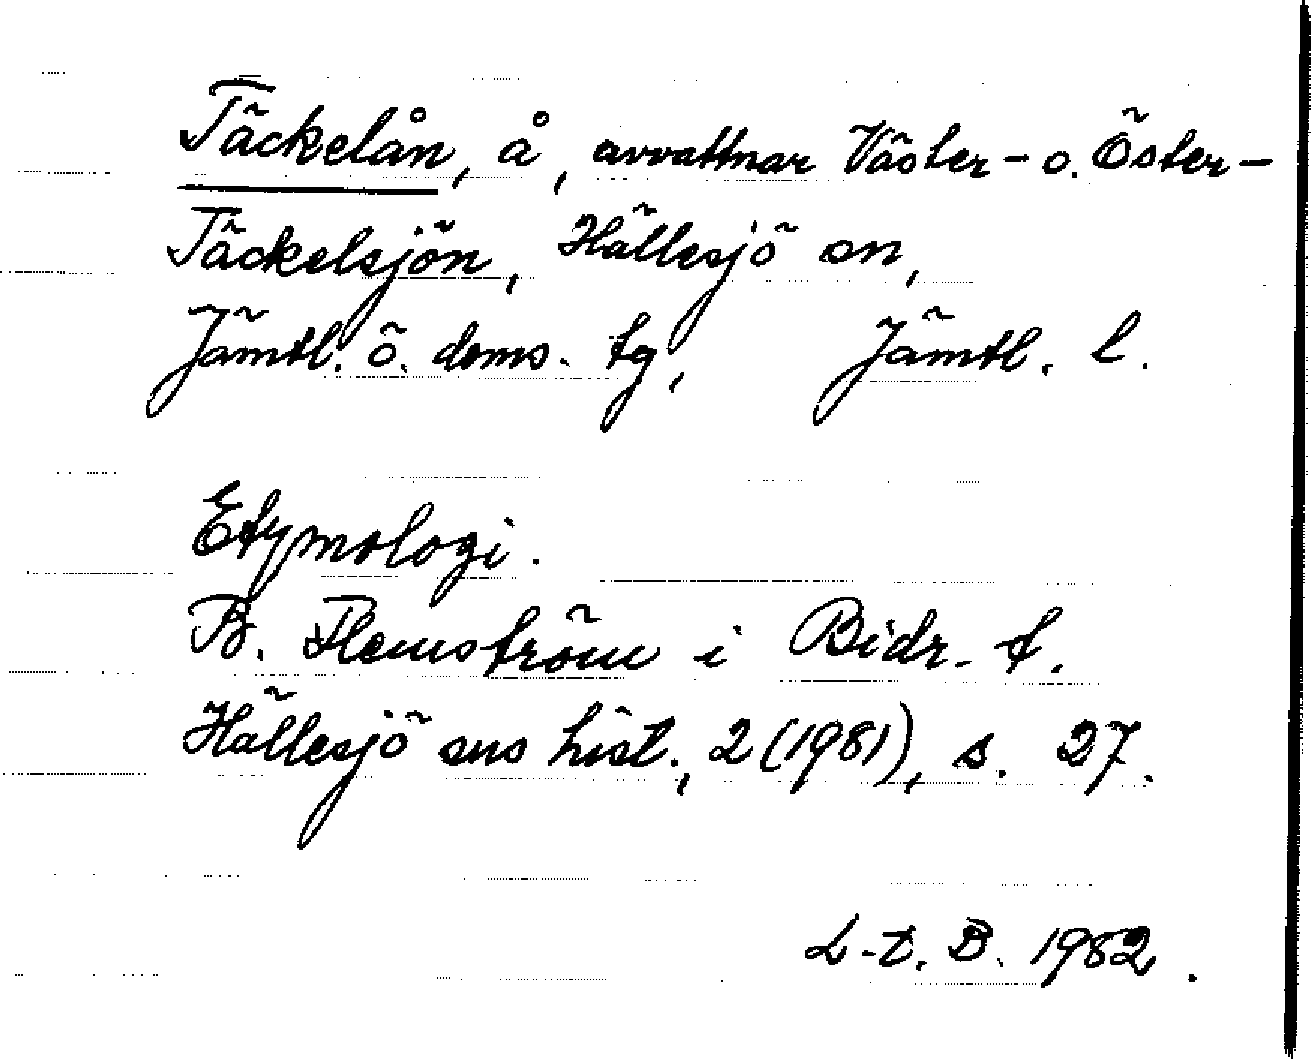 Täckelån, å, avvattnar Väster- o. Öster-
Täckelsjön, Hällesjö sn,
Jämtl. ö. doms. tg, Jämtl. l.
Etymologi.
B. Flemström i Bidr. t.
Hällesjö sns hist., 2 (1981), s. 27.
L-t. B. 1982.